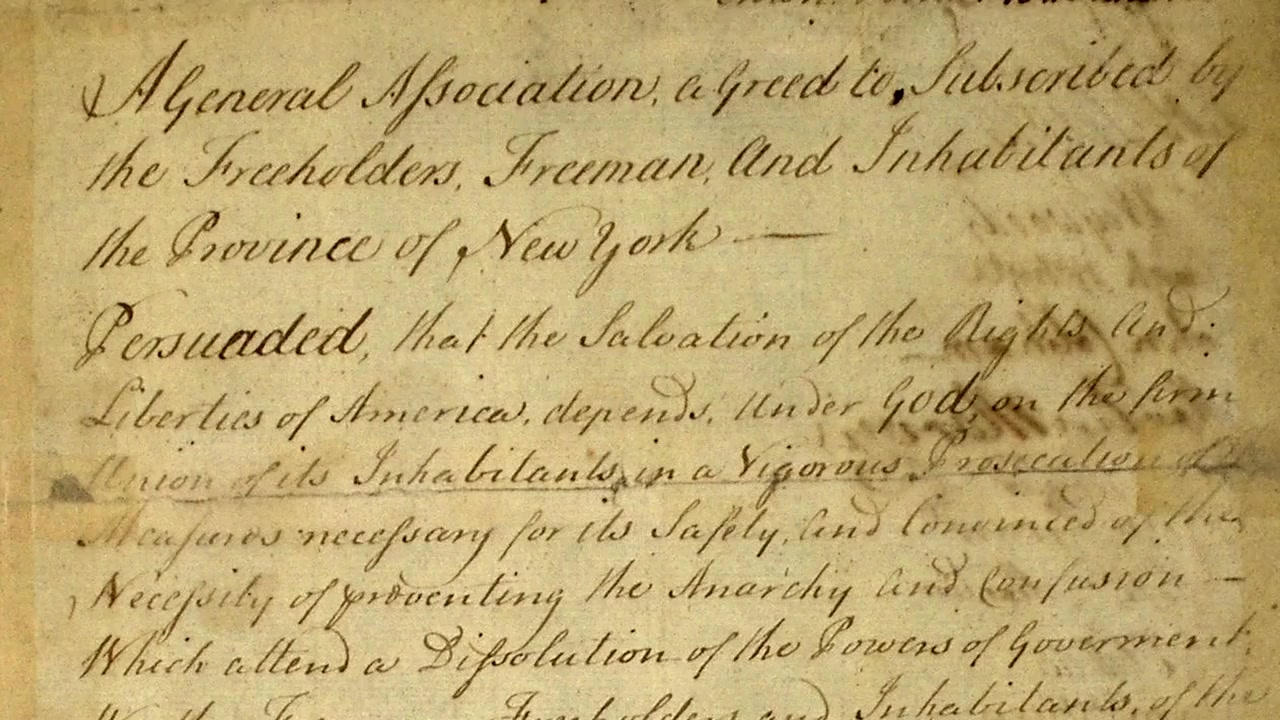 A General Aſsociation, a Greed to, Subscribed by
the Freeholders, Freeman, And Inhabitants of
the Province of New York —
Persuaded, that the Salvation of the Rights And
Liberties of America, depends, Under God, on the firm
Union of its Inhabitants, in a Vigorous Prosecution of
Meaſures neceſsary for its Safety, And Convinced of the
Neceſsity of preventing the Anarchy And Confusion —
Which attend a Diſsolution of the Powers of Goverment,
Freeholders and Inhabitants, of the